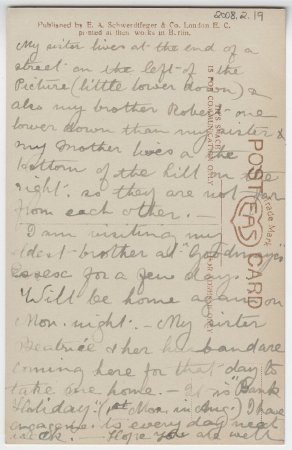 2008.2.19
Published by E. A. Schwerdtfeger & Co. London E. C.
printed at their works in Berlin.
My sister lives at the end of a
street on the left of the
Picture (little lower down) &
also my brother Robert one
lower down than my sister &
my Mother lives a the
bottom of the hill on the
right. so they are not far
from each other. —
I am visiting my
oldest brother at "Goodmay's
Essesc for a few days.
Will be home again on
Mon. night. — My sister
Beatrice & her husband are
coming here for that day to
take me home. — It is "Bank
Holiday". (1st Mon. in Aug.) I have
engagements every day next
week. Hope you are well
THIS SPACE
IS FOR COMMUNICATION
POST CARD
Trade Mark
ONLY